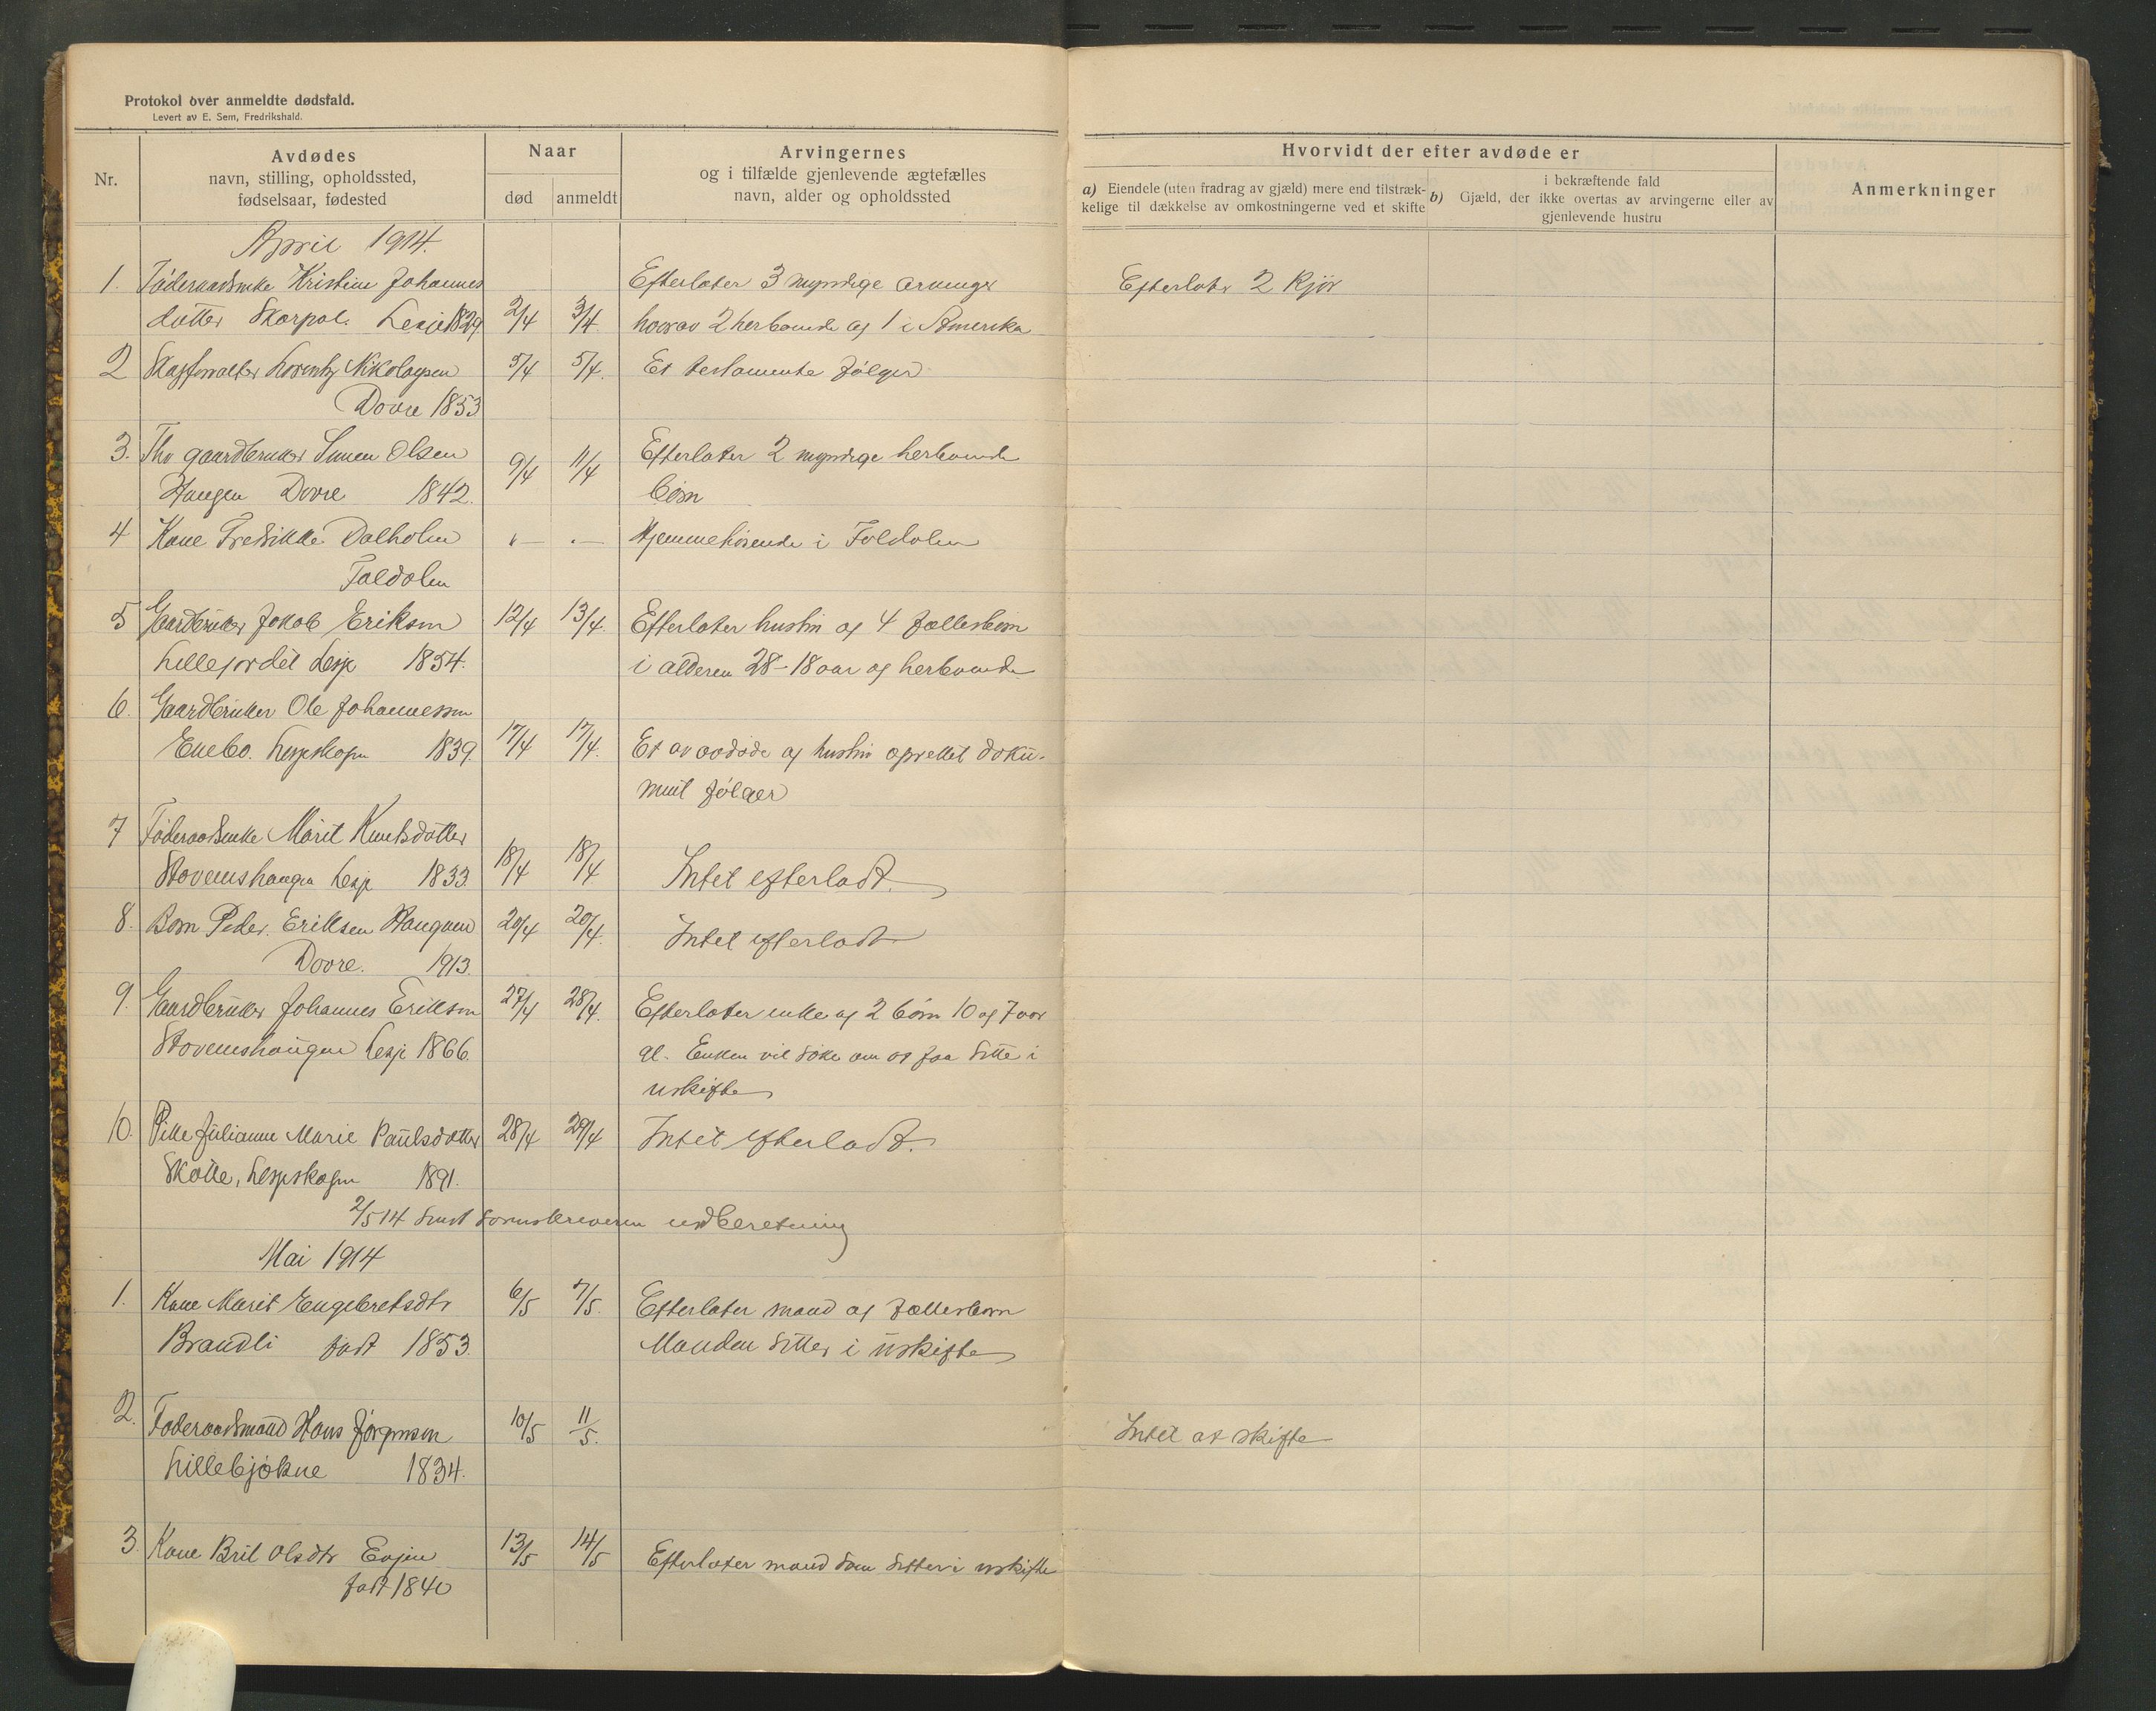 Protokol over anmeldte dødsfald.
Levert av E. Sem, Fredrikshald.
Nr.
Avdødes
navn, stilling, opholdssted,
fødselsaar, fødested
Naar
død
anmeldt
Arvingernes
og i tilfælde gjenlevende ægtefælles
navn, alder og opholdssted
Hvorvidt der efter avdøde er
a) Eiendele (uten fradrag av gjæld) mere end tilstræk-
kelige til dækkelse av omkostningerne ved et skifte
i bekræftende fald
b) Gjæld, der ikke overtas av arvingerne eller av
gjenlevende hustru
Anmerkninger
April 1914.
1. Føderaadsenke Kristine Johannes Efterlater 3 myndige arvinger Efterlater 2 kjør
datter Skarpol. Lesje 1829 2/4 3/4. hvorav 2 herboende og 1 i Amerika
2 Nikolaysen 5/4 5/4. Et testamente følger
Dovre 1853
3. Fhv gaardbruker Simen Olsen 9/4 11/4 Efterlater 2 myndige herboende
Haugen Dovre 1842. børn
4 Kone Fredrikke Dalholen "— "— Hjemmehørende i Foldalen
Foldalen
5 Gaardbruker Jakob Eriksen 12/4 13/4. Efterlater hustru og 4 fællesbørn
Lillejordet Lesje 1854. i alderen 28-18 aar og herboende
6. Gaardbruker Ole Johannessen
Enebo. Lesjeskogen 1839. 17/4 17/4. Et av avdøde og hustru oprettet doku-
ment følger
7 Føderaadsenke Marit Knutsdatter
Stovenshaugen Lesje 1833. 18/4 18/4 Intet efterladt.
8. Barn Peder Eriksen Haugen 20/4 20/4. Intet efterladt
Dovre. 1913.
9. Gaardbruker Johannes Eriksen 27/4 28/4. Efterlater enke og 2 børn 10 og 7 aar
Stovenshaugen Lesje 1866. gl. Enken vil søke om at faa sitte i
uskifte
10. Pike Julianne Marie Paulsdatter 28/4 29/4 Intet efterladt.
Skotte, Lesjeskogen 1891.
2/5 14 sendt sorenskriveren indberetning
Mai 1914
1. Kone Marit Engebretsdtr 6/5 7/5. Efterlater mand og fællesbørn
Brandli født 1853. Manden sitter i uskifte
2. Føderaadsmand Hans Jørgensen 10/5 11/5. Intet at skifte
Lillebjøkne 1834.
3. Kone Brit Olsdtr Enjen 13/5 14/5 Efterlater mand som sitter i uskifte
født 1840